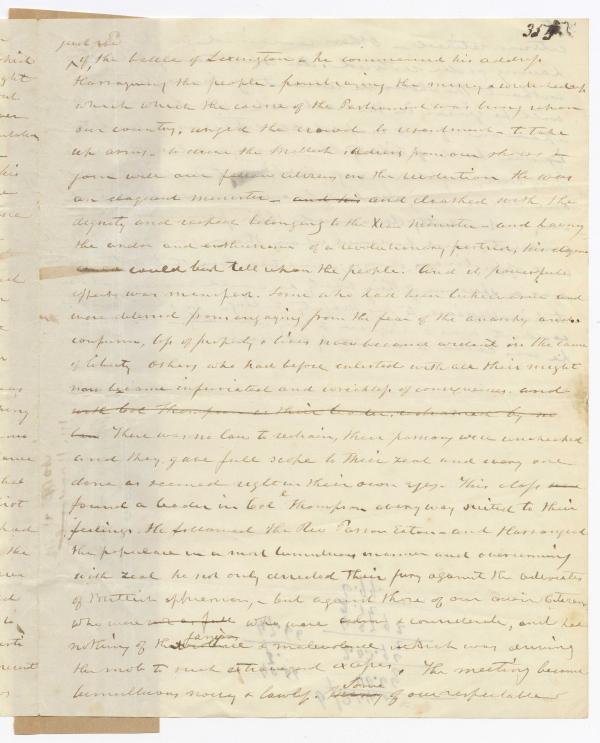 359
just the
of, the battle of Lexington & he commenced his address
Harraguing the people - portraying the
which which the course of the Parliament was being upon
our country, urged the crowd to resentment - to take
up arms - to drive the British soldiers from our shores &
join with our fellow citizens in the revolution He was
an eloquent minister - and his and clashed with the
dignity and respect belonging to the Xn minister - and having
the ardor and enthusiasm of a revolutionary period, his eloquence
could but tell upon the people. And it powerfull
effects was manifest. Some who had been lukewarm and
were deterred from engaging from the fear of the anarchy and
confusion, loss of property & lives now became ardent in the cause
of liberty Others who had before enlisted with all their might
now became infuriated and wreckless of consequences. and
with Col Thompson as their leader, restrained by no
law There was no law to restrain, their passions were unchecked
and they gave full scope to their zeal and every one
done as seemed right in their own eyes. This class
found a leader in Col Thompson every way suited to their
feelings. He followed the Rev Parson Eaton - and Harrangued
the populace in a most tumultuous manner and overrunning
with zeal he not only directed their fury against the advocates
of British oppression, - but against those of our own citizens
who were who were calm & considerate, and had
nothing of the & malevolence which was driving
the mob to such extremes and excesses. The meeting became
tumultuous noisy & lawless. Some of our respectable